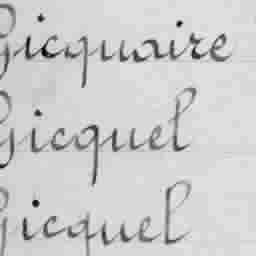 Gicquaire
Gicquel
Gicquel